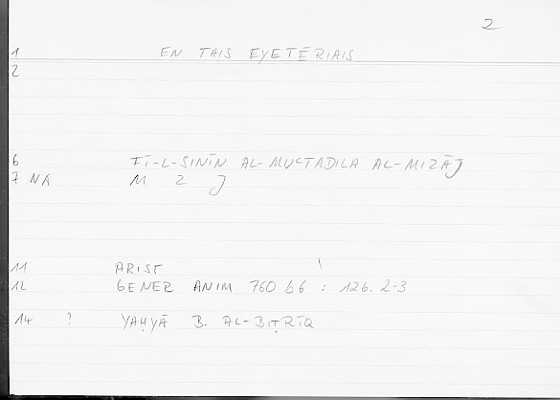 2
1 EN TAIS EYETĒRIAIS
2
6 FĪ-L-SINĪN AL-MUʿTADILA AL-MIZĀJ
7 NA M Z J
11 ARIST
12 GENER ANIM 760 b6 : 126.2-3
14 ? YAḤYĀ B. AL-BIṬRĪQ